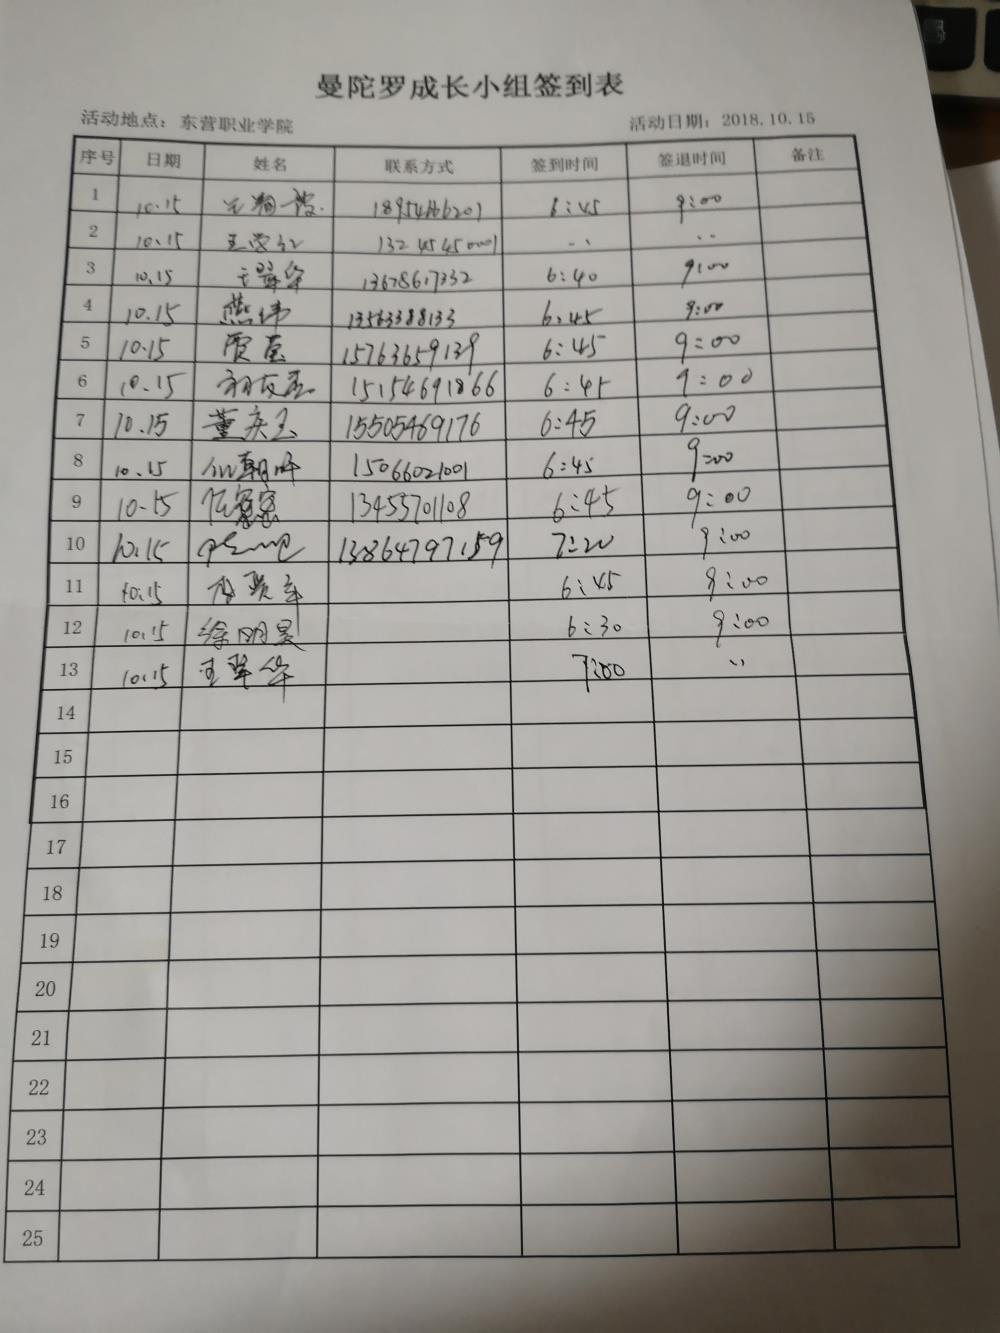 曼陀罗成长小组签到表
活动地点：东营职业学院 活动日期：2018.10.15
序号 日期 姓名 联系方式 签到时间 签退时间 备注
1 10.15 6:45 9:00
2 10.15 13245450001
3 10.15 王翠华 13678617332 6:40 9:00
4 10.15 燕伟 13563388133 6:45 9:00
5 10.15 贾蕾 15763659139 6:45 9:00
6 10.15 15154691866 6:45 9:00
7 10.15 董庆玉 15505469176 6:45 9:00
8 10.15 15066021001 6:45 9:00
9 10.15 13455701108 6:45 9:00
10 10.15 13864797159 7:20 9:00
11 10.15 6:45 9:00
12 10.15 徐明昊 6:30 9:00
13 10.15 王翠华 7:00
14
15
16
17
18
19
20
21
22
23
24
25